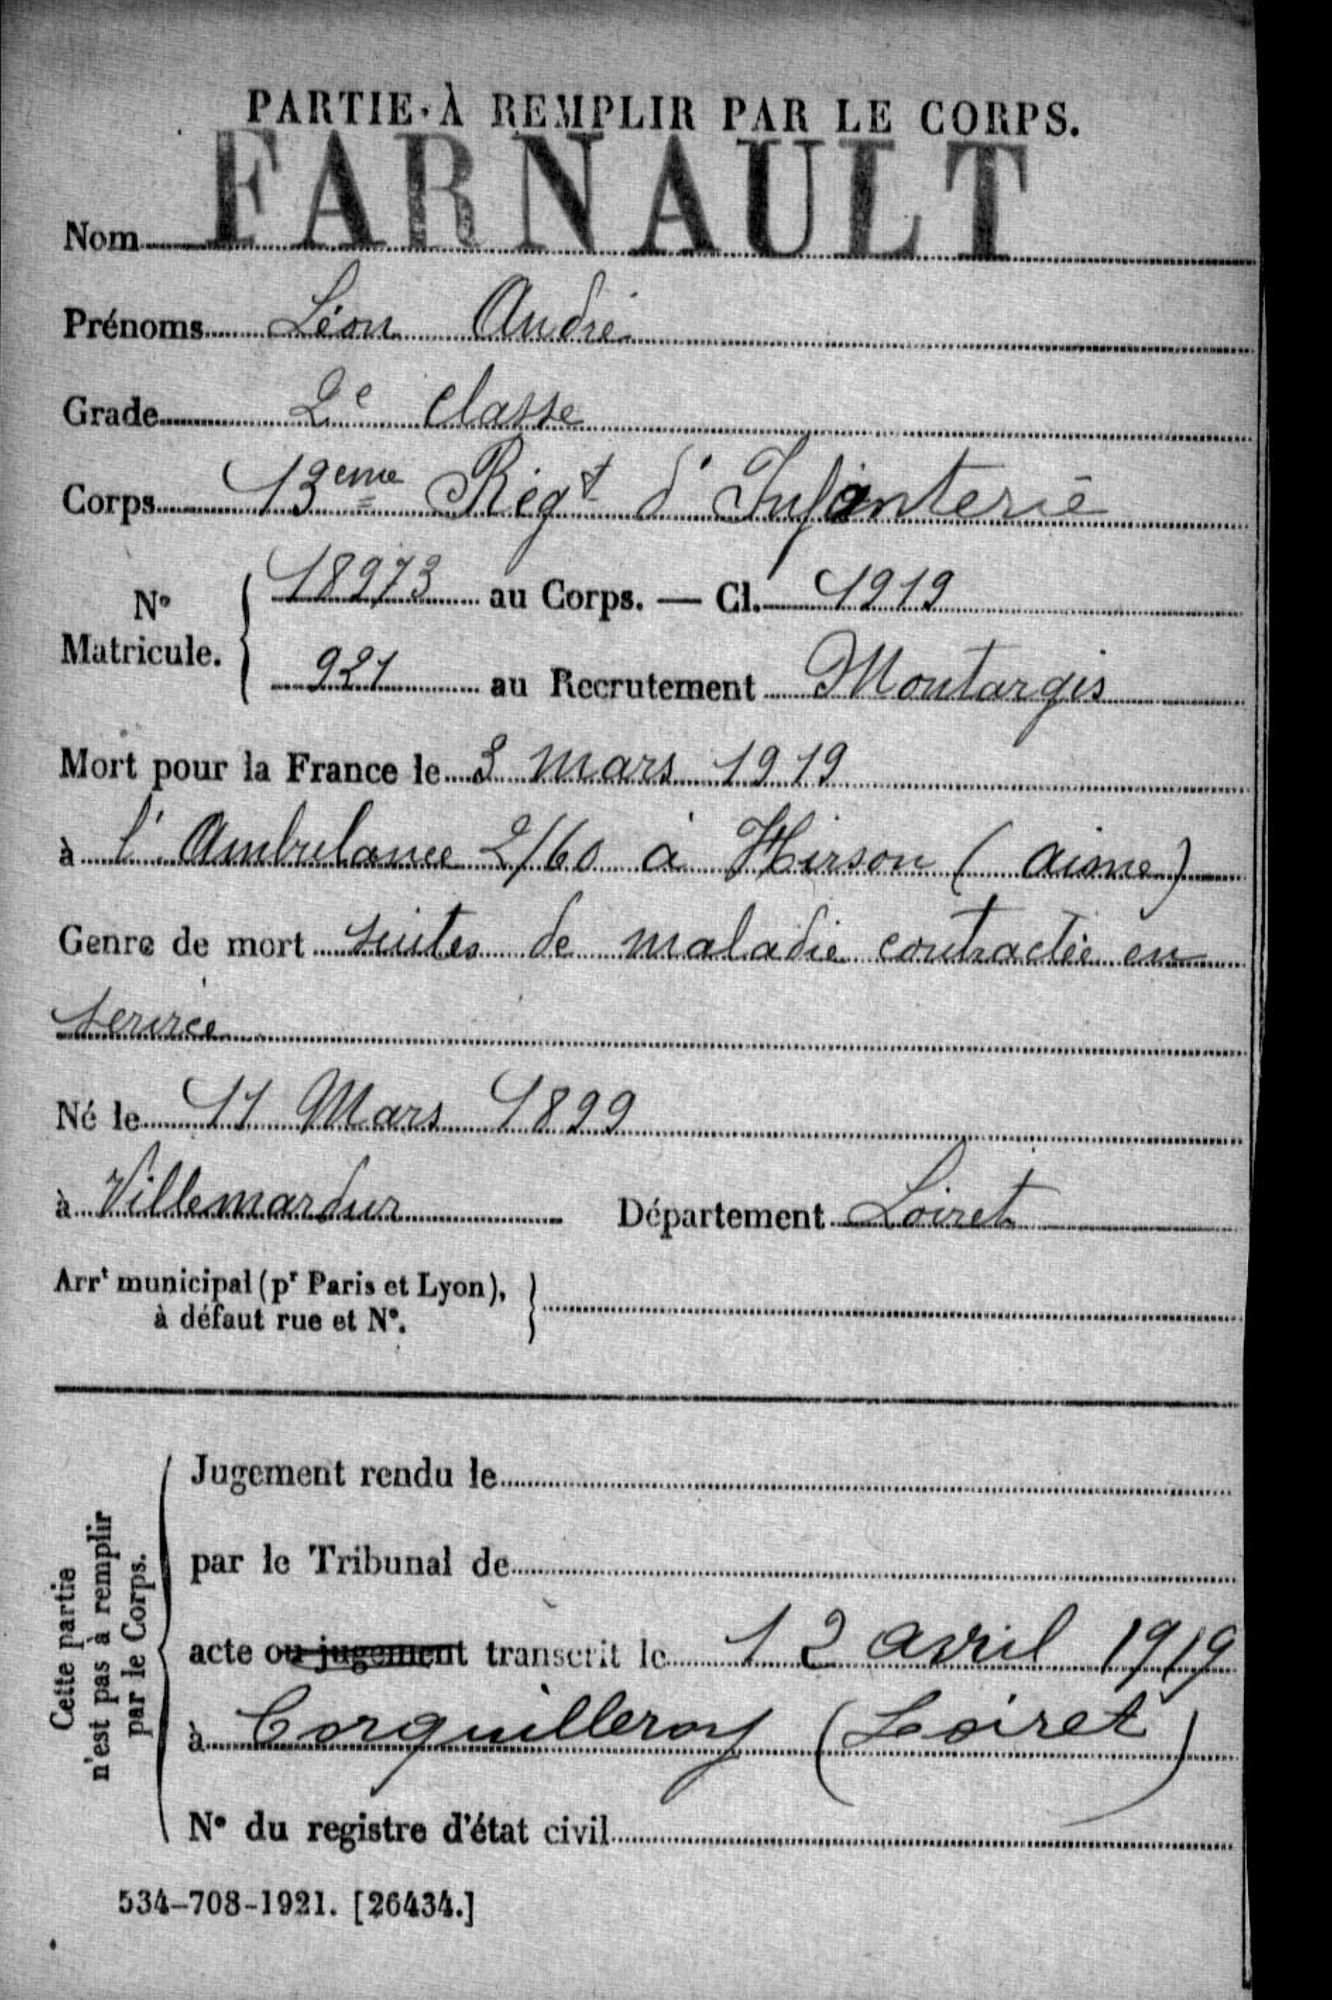 PARTIE À REMPLIR PAR LE CORPS.
Nom FARNAULT
Prénoms Léon André
Grade 2e classe
Corps 13eme Régt d'Infanterie
No Matricule. { 18973 au Corps. — Cl. 1919
921 au Recrutement Montargis
Mort pour la France le 3 mars 1919
à l'Ambulance 2/60 à Hirson (aisne)
Genre de mort suites de maladie contractée en
service
Né le 11 Mars 1899
à Villemardur Département Loiret
Arrt municipal (pr Paris et Lyon),
à défaut rue et No.
Cette partie
n'est pas à remplir
par le Corps.
Jugement rendu le
par le Tribunal de
acte ou jugement transcrit le 12 avril 1919
à Corquilleroy (Loiret)
No du registre d'état civil
534-708-1921. [26434.]